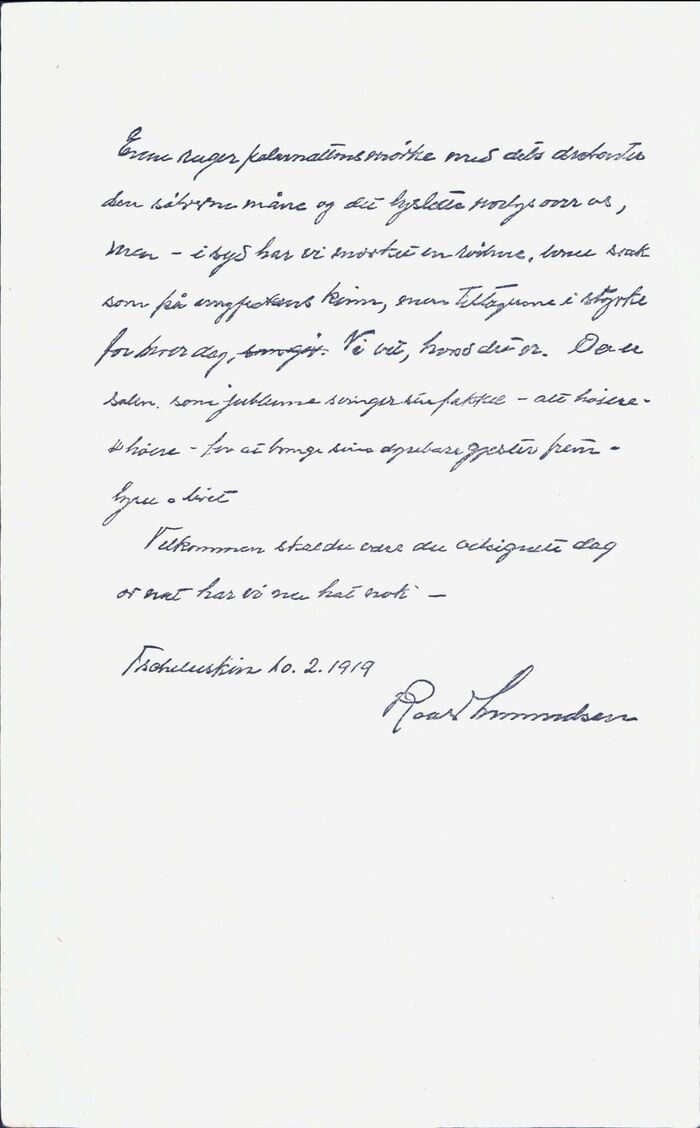 Ennu ruger polarnattens mörke med dets drabanter
den sölverne måne og det lyslette nordlys over os,
men - i syd har vi mærket en rödme, bare svak
som på ungpikens kinn, men tiltagene i styrke
for hver dag, Vi vet, hvad det er. Det er
solen, som jublenne svinger sin fakkel - alt höiere -
höiere - for at bringe sine dyrebare gjester frem -
lyset o livet
Velkommen skal du være du velsignete dag
av nat har vi nu hat nok -
Tscheluskin 10. 2. 1919
Roald Amundsen